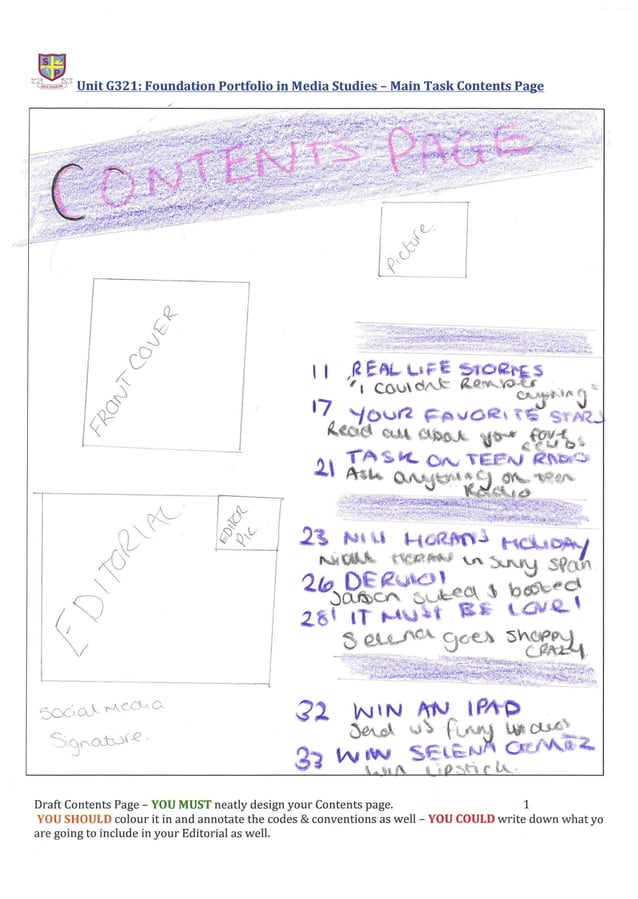 Unit G321: Foundation Portfolio in Media Studies – Main Task Contents Page
CONTENTS PAGE
Picture.
FRONT COVER
11 REAL LIFE STORIES
"I couldnt
anything"
17 YOUR FAVORITE STARS
Read all about your
21 TASK ON TEEN RADIO
Ask anything on teen
Radio
EDITORIAL
EDITOR
PIC.
23 HOLIDAY
HORAN in Sunny Span
26
Jason suted & booted
28 IT MUST BE LOVE!
Selena goes shoppy
CRAZY.
Social Media
Signature.
32 WIN AN IPAD
Send us funny
33 WIN SELENA GOMEZ
Win Lipstick.
Draft Contents Page – YOU MUST neatly design your Contents page. 1
YOU SHOULD colour it in and annotate the codes & conventions as well – YOU COULD write down what yo
are going to include in your Editorial as well.